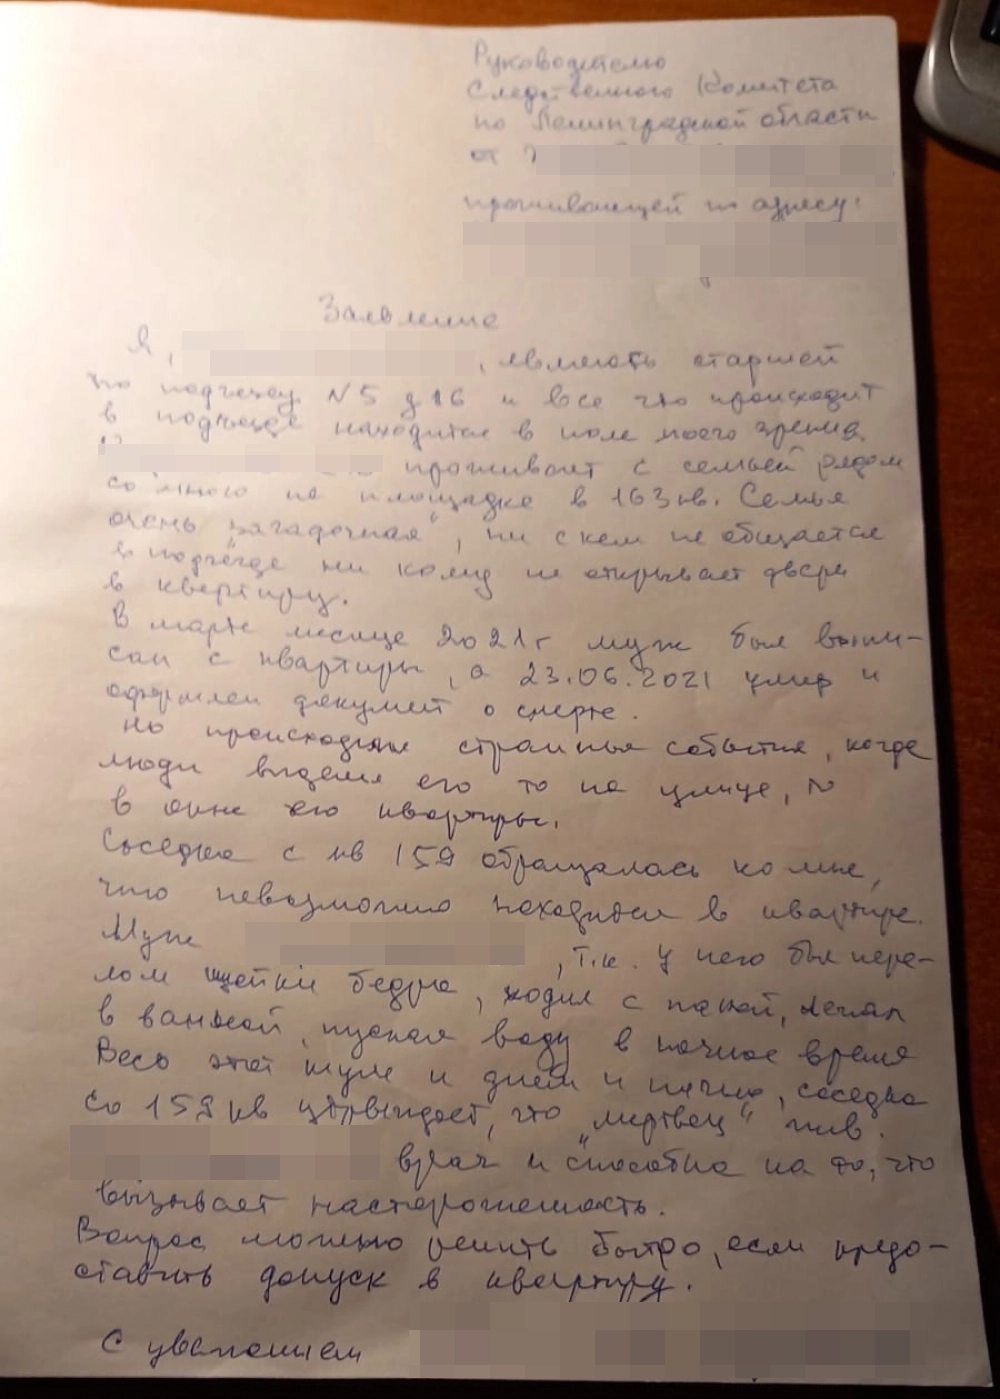 Руководителю
Следственного Комитета
по Ленинградской области
от
проживающей по адресу:
Заявление
Я, , являюсь старшей
по подъезду №5 д 16 и все что происходит
в подъезде находится в поле моего зрения.
проживает с семьей рядом
со мною на площадке в 163 кв. Семья
очень "загадочная", ни с кем не общается
в подъезде ни кому не открывает двери
в квартиру.
В марте месяце 2021 г муж был выпи-
сан с квартиры, а 23.06.2021 умер и
оформлен документ о смерте.
Но происходят странные события, когда
люди видели его то на улице, то
в окне его квартиры.
Соседка с кв 159 обращалась ко мне,
что невозможно находится в квартире.
Муж , т.к. у него был пере-
лом шейки бедра, ходил с палкой, лежал
в ванной, пускал воду в ночное время
Весь этот шум и днем и ночью, соседка
со 159 кв утверждает, что "мертвец" жив.
врач и способна на то, что
вызывает настороженность.
Вопрос можно решить быстро, если предо-
ставить допуск в квартиру.
С уважением